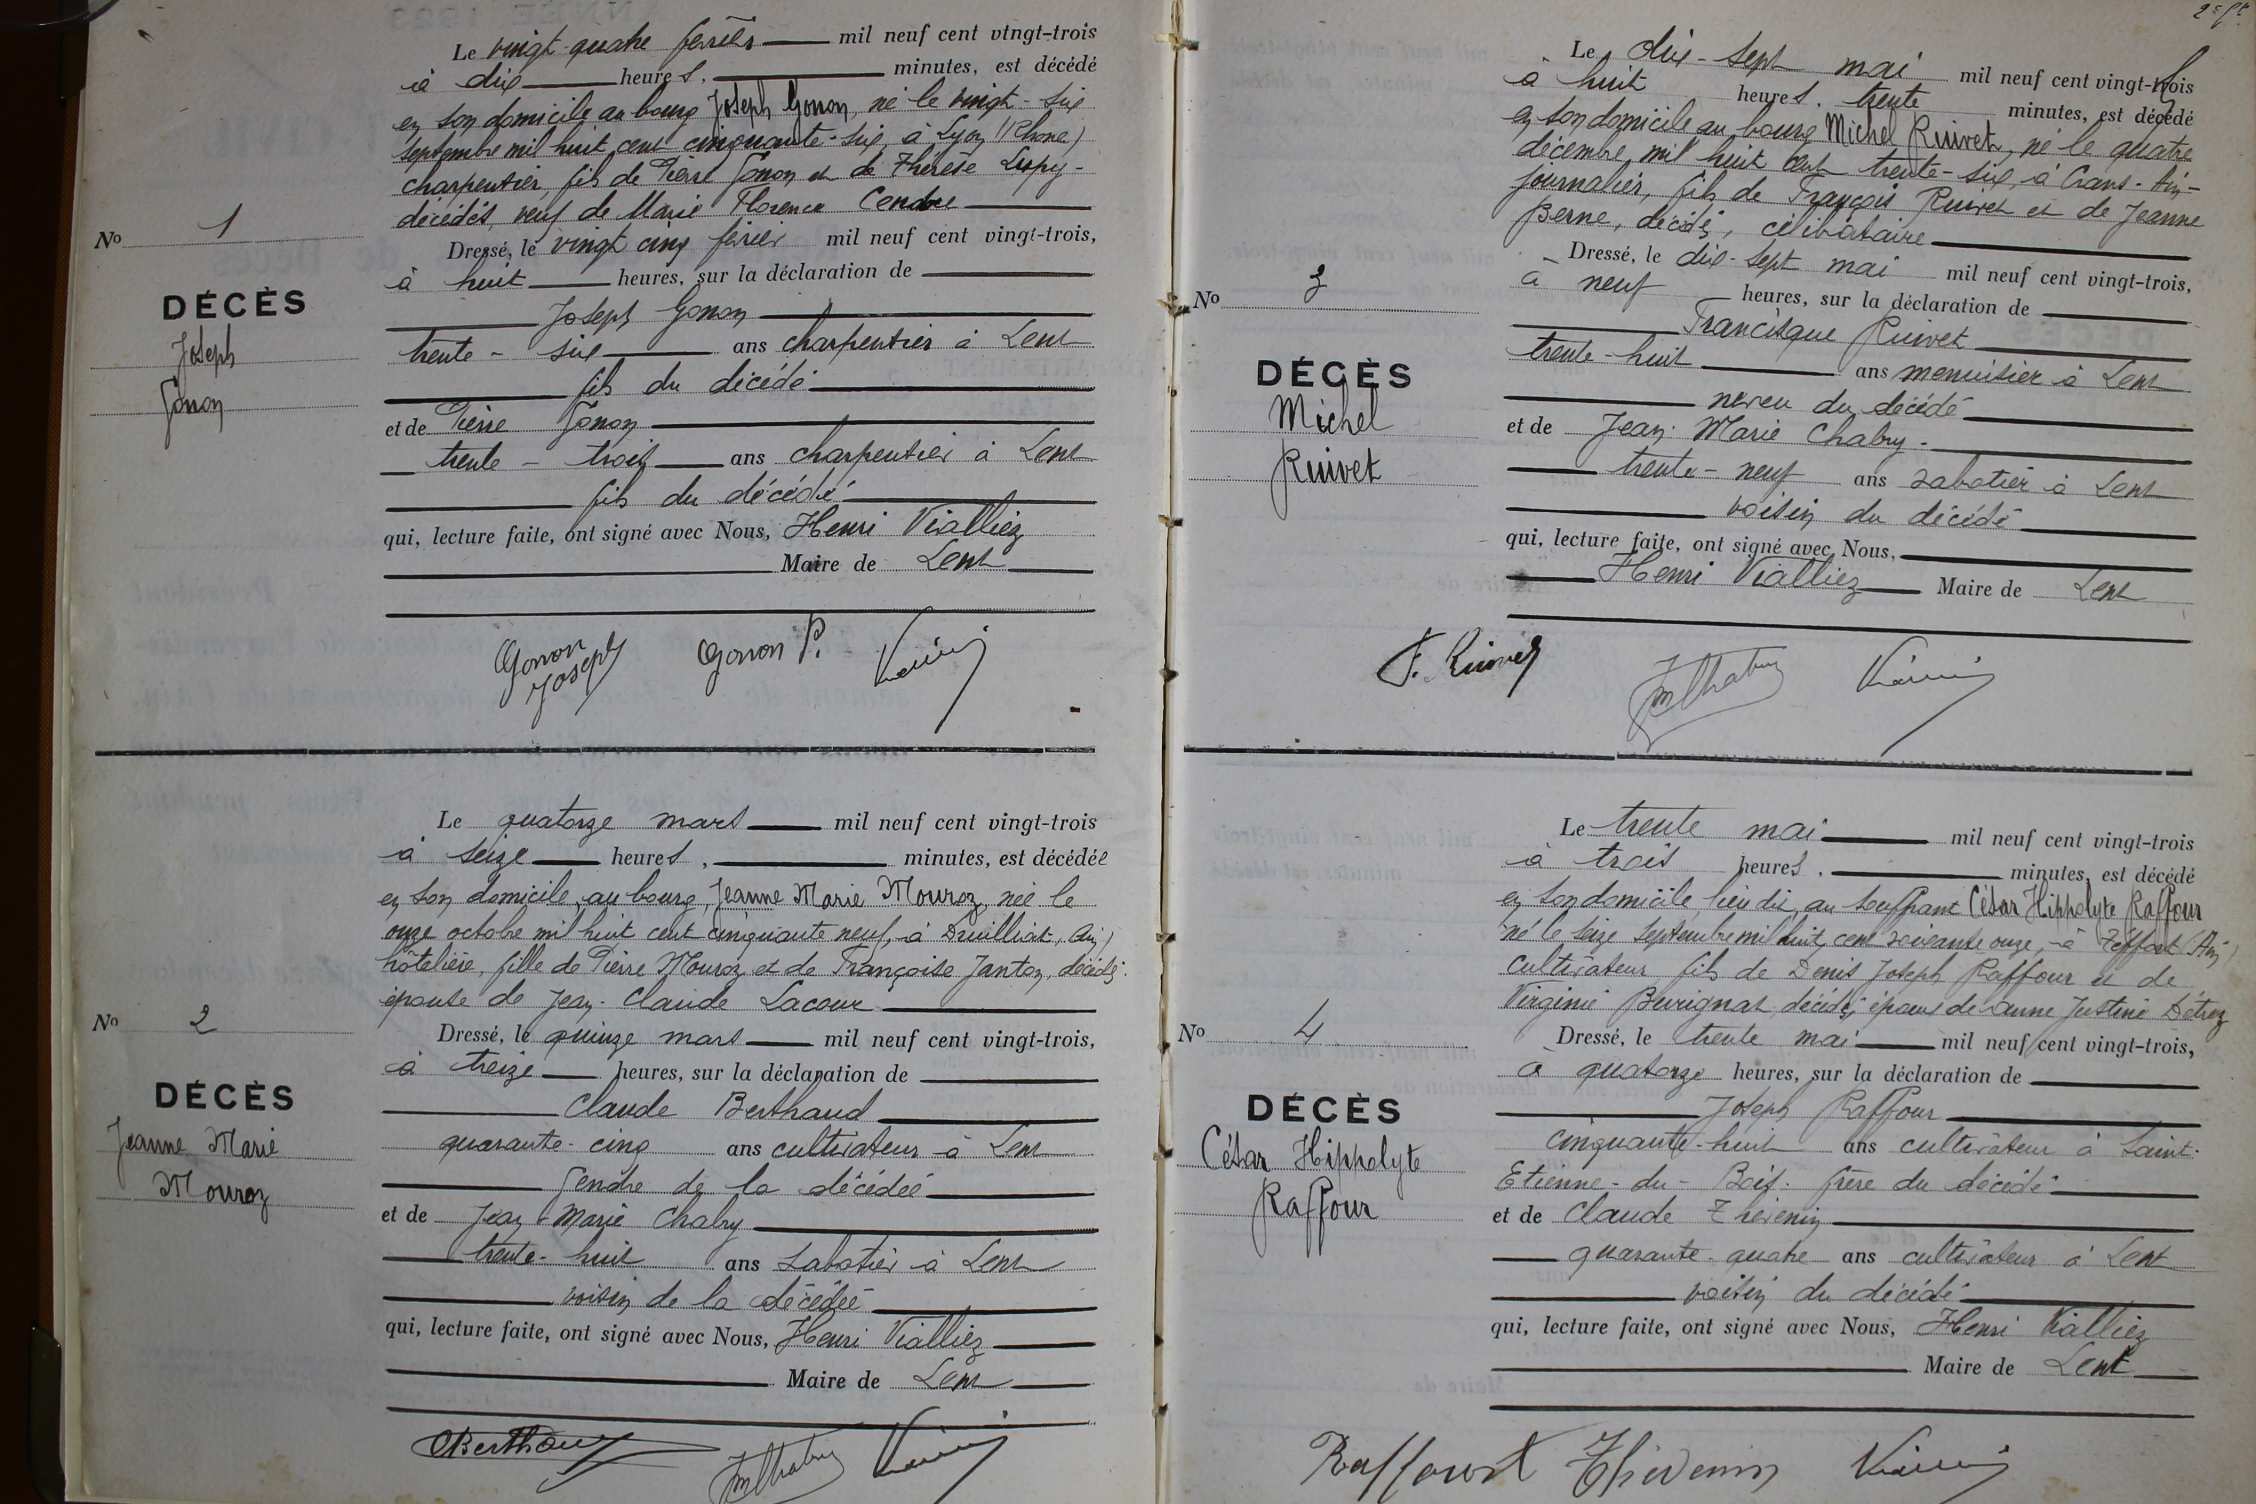 Le vingt-quatre février mil neuf cent vingt-trois
à dix heures. minutes, est décédé
en son domicile au bourg Joseph Gonon, né le vingt-six
septembre mil huit cent cinquante-six, à Lyon (Rhône)
charpentier, fils de Pierre Gonon et de Thérèse
décédés, veuf de Marie Florence Cendre
No 1
Dressé, le vingt cinq février mil neuf cent vingt-trois,
à huit heures, sur la déclaration de
DÉCÈS
Joseph
Gonon
Joseph Gonon
trente-six ans charpentier à Lent
fils du décédé
et de Pierre Gonon
trente-trois ans charpentier à Lent
fils du décédé
qui, lecture faite, ont signé avec Nous, Henri Vialliez
Maire de Lent
Gonon Joseph Gonon P.
Le quatorze mars mil neuf cent vingt-trois
à seize heures, minutes, est décédée
en son domicile, au bourg, Jeanne Marie Mouroz, née le
onze octobre mil huit cent cinquante neuf, à Druilliat, (Ain)
hôtelière, fille de Pierre Mouroz et de Françoise Janton, décédés.
épouse de Jean-Claude Lacour
No 2
Dressé, le quinze mars mil neuf cent vingt-trois,
à treize heures, sur la déclaration de
DÉCÈS
Jeanne Marie
Mouroz
Claude Berthaud
quarante-cinq ans cultivateur à Lent
gendre de la décédée
et de Jean-Marie Chabry
trente-huit ans sabotier à Lent
voisin de la décédée
qui, lecture faite, ont signé avec Nous, Henri Vialliez
Maire de Lent
Berthaud
Le dix-sept mai mil neuf cent vingt-trois
à huit heures. trente minutes, est décédé
en son domicile au bourg Michel Ruivet, né le quatre
décembre mil huit cent trente-six, à Crans-Ain-
journalier, fils de François Ruivet et de Jeanne
Berne, décédés, célibataire
No 3
Dressé, le dix-sept mai mil neuf cent vingt-trois,
à neuf heures, sur la déclaration de
DÉCÈS
Michel
Ruivet
Francisque Ruivet
trente-huit ans menuisier à Lent
neveu du décédé
et de Jean-Marie Chabry-
trente-neuf ans sabotier à Lent
voisin du décédé
qui, lecture faite, ont signé avec Nous,
Henri Vialliez Maire de Lent
F. Ruivet
Le trente mai mil neuf cent vingt-trois
à trois heures. minutes, est décédé
en son domicile, lieu dit, au Souffrant César Hippolyte Raffour
né le seize septembre mil huit cent soixante onze, à Treffort (Ain)
cultivateur fils de Denis Joseph Raffour et de
Virginie décédés, époux de Anne Justine
No 4
Dressé, le trente mai mil neuf cent vingt-trois,
à quatorze heures, sur la déclaration de
DÉCÈS
César Hippolyte
Raffour
Joseph Raffour
cinquante-huit ans cultivateur à Saint-
Etienne-du-Bois. frère du décédé
et de Claude Thévenin
quarante-quatre ans cultivateur à Lent
voisin du décédé
qui, lecture faite, ont signé avec Nous, Henri Vialliez
Maire de Lent
Raffourt Thévenin